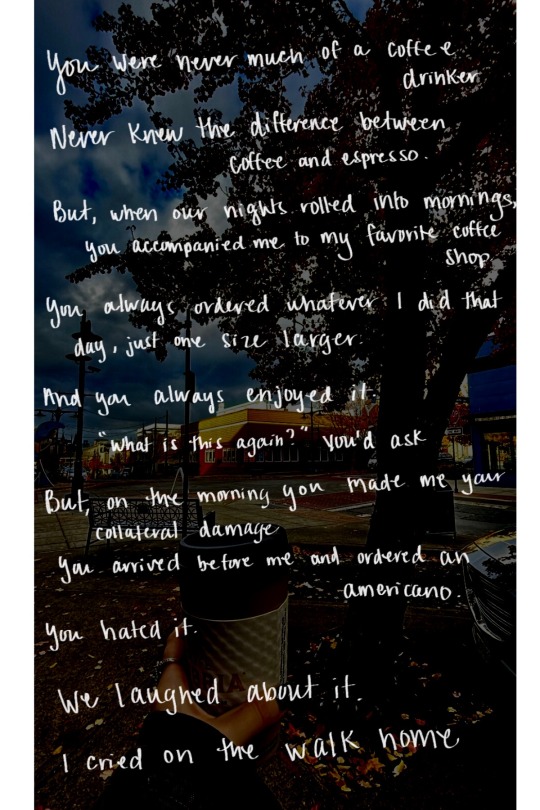 You were never much of a coffee
drinker.
Never knew the difference between
coffee and espresso.
But, when our nights rolled into mornings,
you accompanied me to my favorite coffee
shop.
You always ordered whatever I did that
day, just one size larger.
And you always enjoyed it.
"what is this again?" you'd ask
But, on the morning you made me your
collateral damage
you arrived before me and ordered an
americano.
You hated it.
We laughed about it.
I cried on the walk home